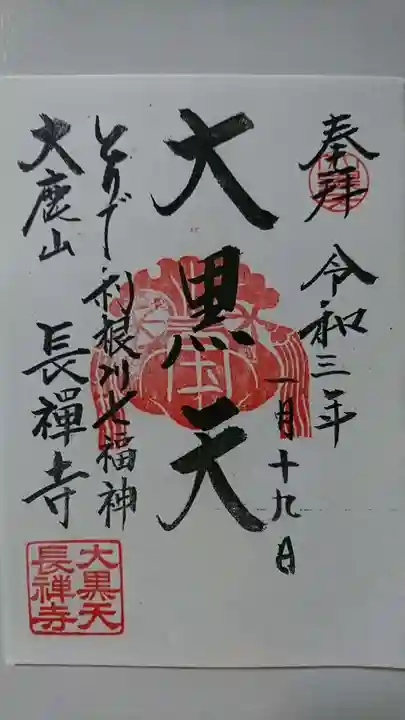 奉拝
令和三年
一月十九日
大黒天
とりで利根川七福神
大鹿山
長禪寺
大黒天
長禅寺